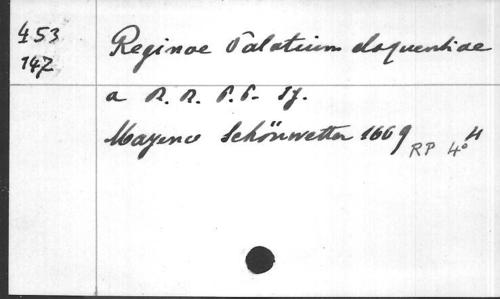 453
147
Reginae Palatium eloquentiae
a R. R. P. P. Sj.
Mayence Schönwetter 1669
RP 4°